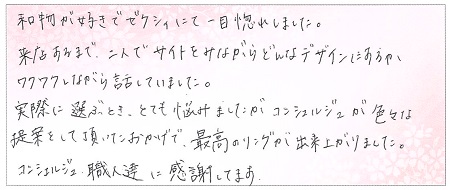 和物が好きでゼクシィにて一目惚れしました。
来店するまで、二人でサイトをみながらどんなデザインにするか、
ワクワクしながら話していました。
実際に選ぶとき、とても悩みましたがコンシェルジュが色々な
提案をして頂いたおかげで、最高のリングが出来上がりました。
コンシェルジュ、職人達に感謝してます。